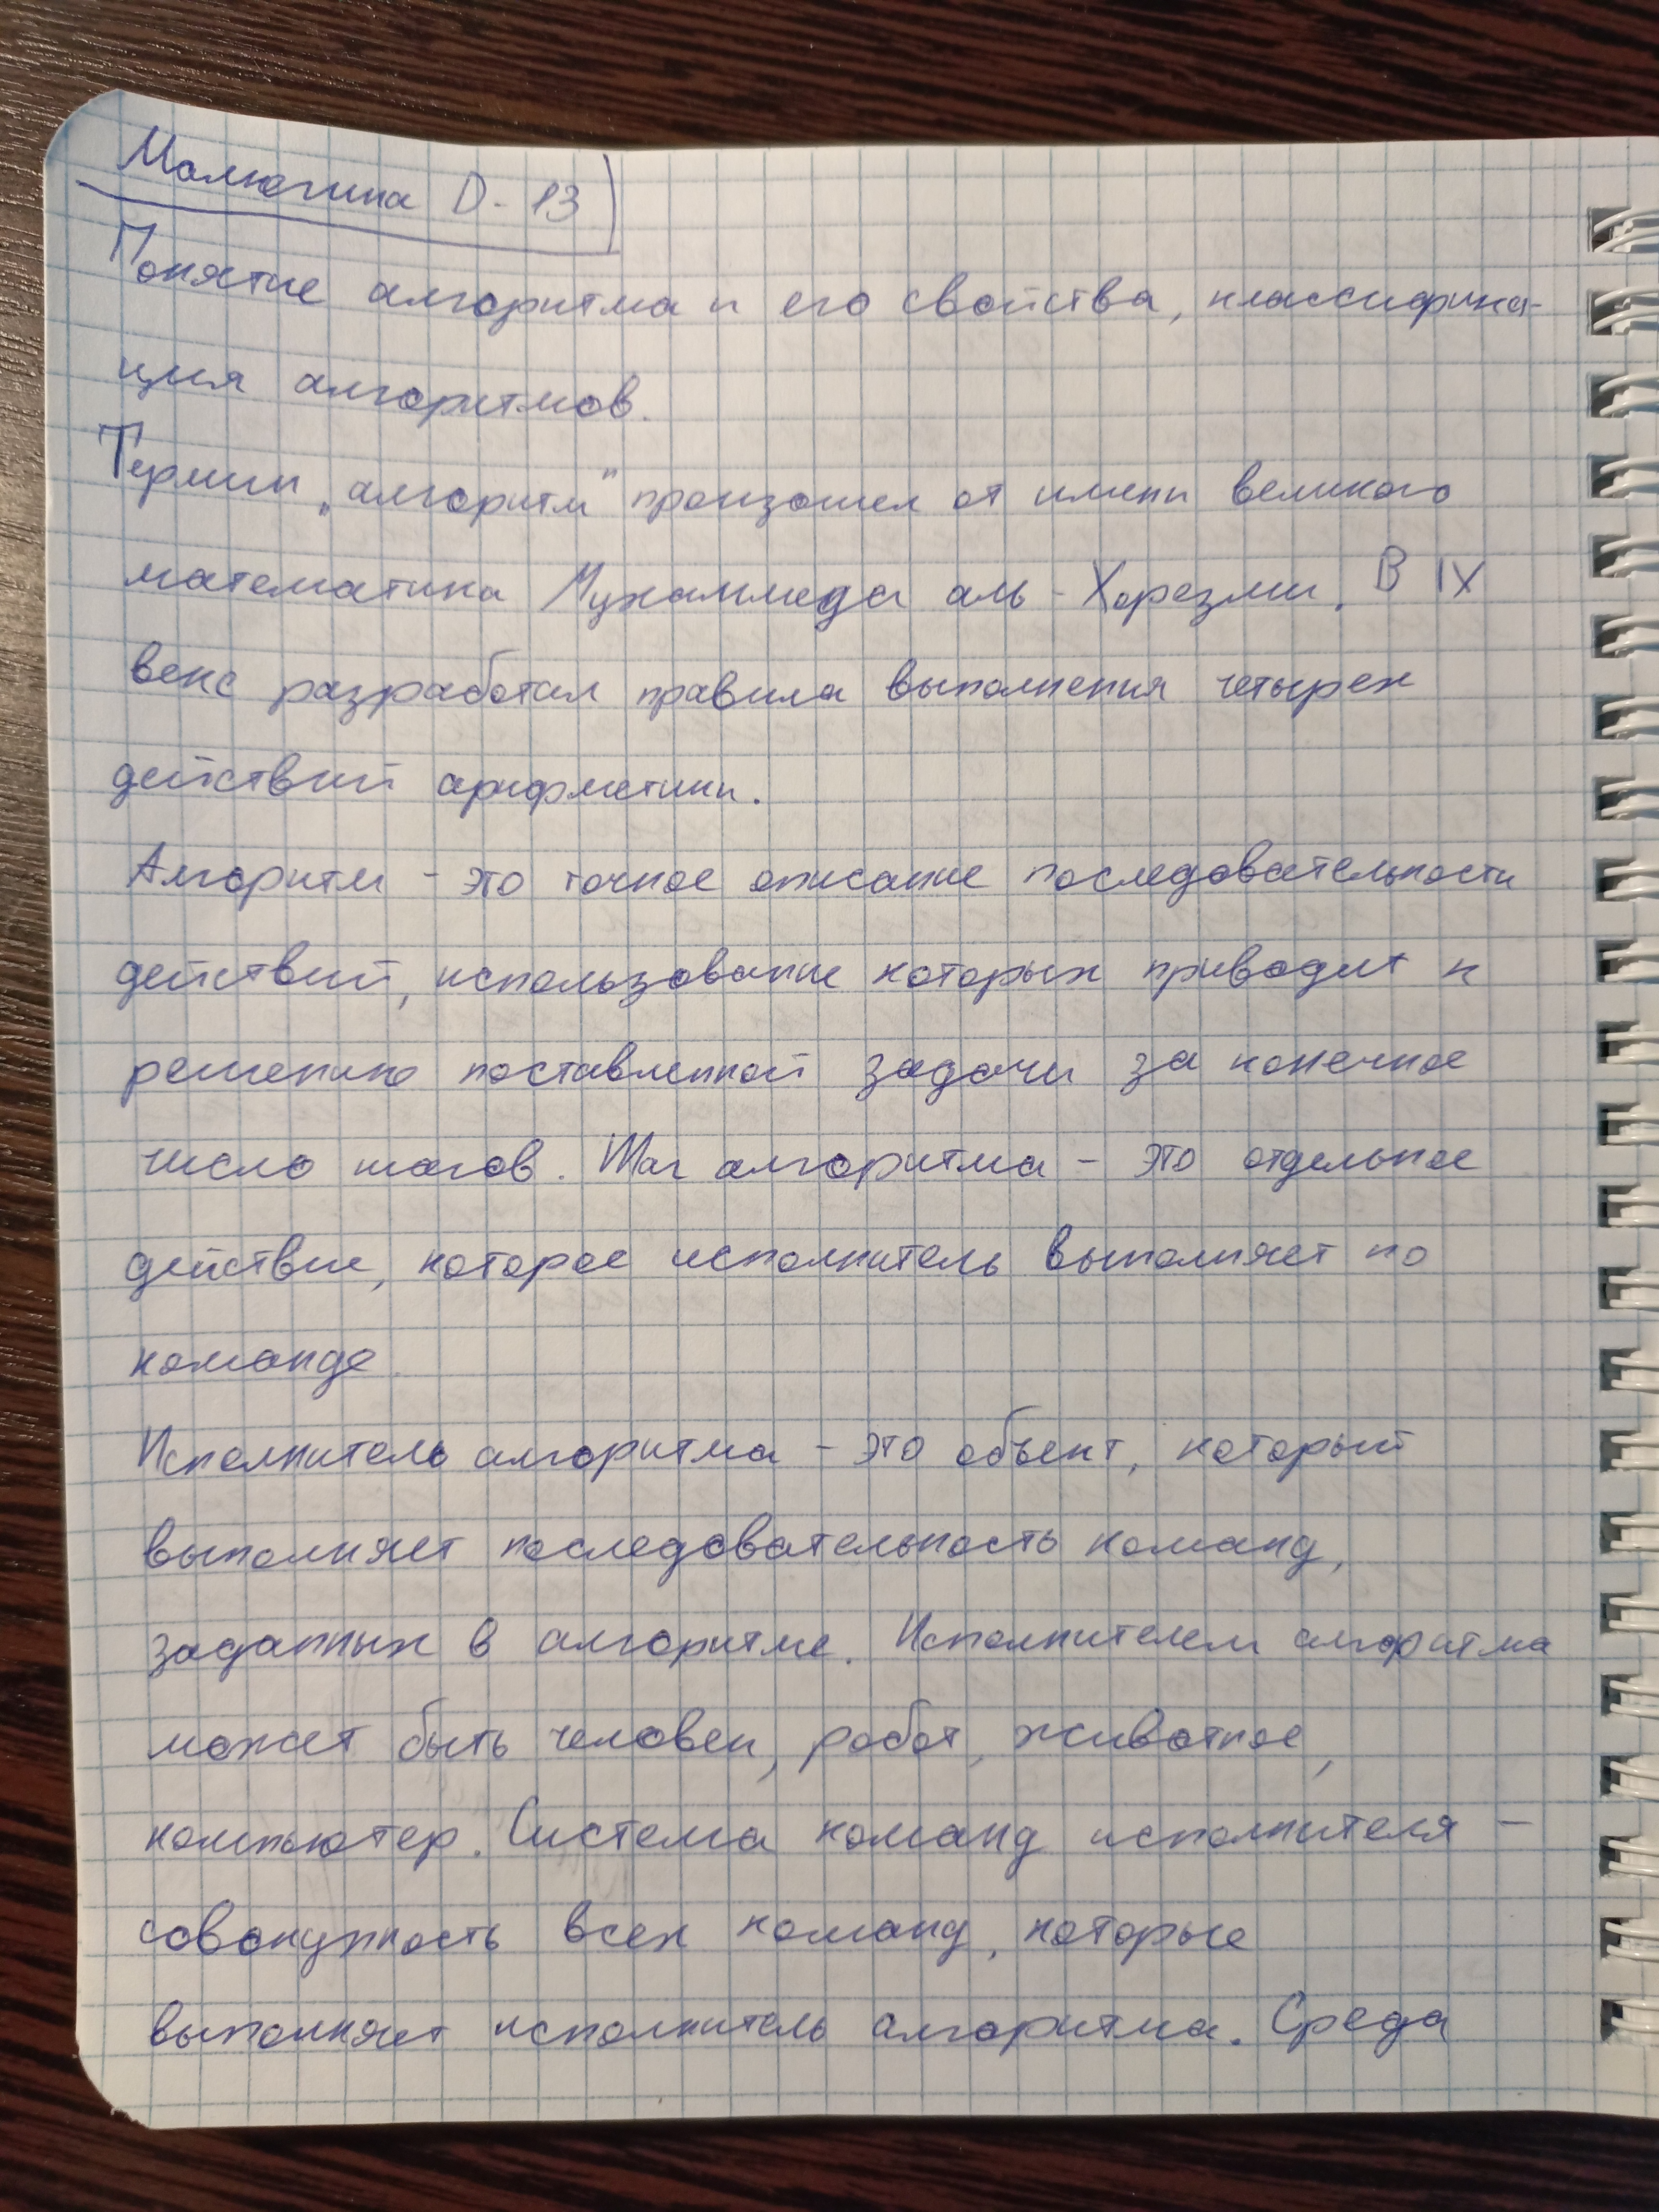 Малюгина D-13
Понятие алгоритма и его свойства, классифика-
ция алгоритмов.
Термин „алгоритм" произошел от имени великого
математика Мухаммеда аль-Хорезми. В IX
веке разработал правила выполнения четырех
действий арифметики.
Алгоритм - это точное описание последовательности
действий, использование которых приводит к
решению поставленной задачи за конечное
число шагов. Шаг алгоритма - это отдельное
действие, которое исполнитель выполняет по
команде.
Исполнитель алгоритма - это объект, который
выполняет последовательность команд,
заданных в алгоритме. Исполнителем алгоритма
может быть человек, робот, животное,
компьютер. Система команд исполнителя -
совокупность всех команд, которые
выполняет исполнитель алгоритма. Среда